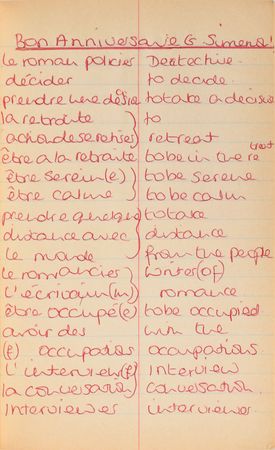 Bon Anniversaire G Simenon!
le roman policier Dectective.
décider to decide.
prendre une désire to take a decisio
la retraite to
action de se retirer retreat
être a la retraite to be in the retreat
être serein(e) to be serene
être calme to be calm
prendre quelque to take
distance avec distance
le monde from the people
le romancier writer (of)
L'écrivain (m) romance
être occupé(e) to be occupied
avoir des with the
(f) occupations occupations.
L'interview (f) Interview
la conversation conversation.
Interviewer interviewer.